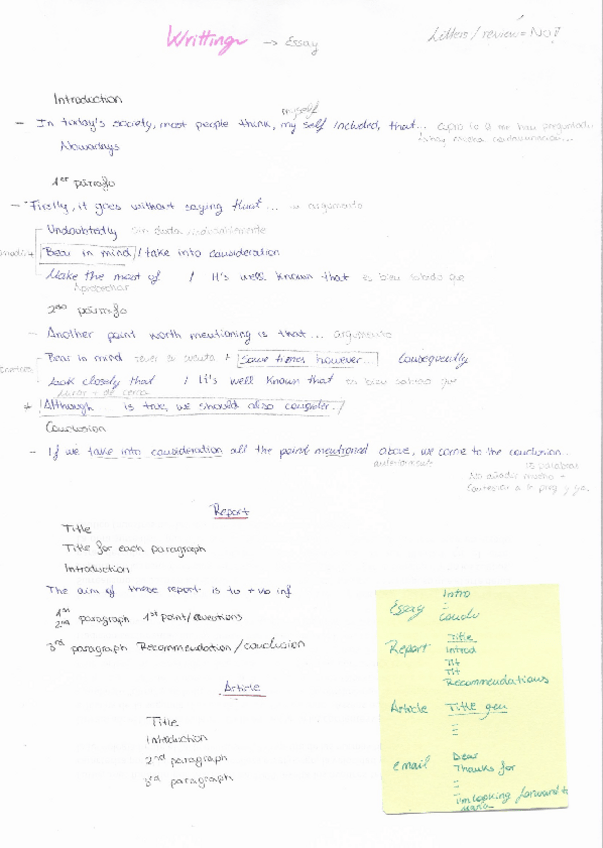 Writting → Essay
Letters / review = NO!
Introduction
myself
- In today's society, most people think, my self included, that... copio lo q me han preguntado
Nowadays
1er párrafo
- Firstly, it goes without saying that... argumento
Undoubtedly sin duda
Bear in mind / take into consideration
Make the most of / It's well known that es bien sabido que
Aprovechar
2do párrafo
- Another point worth mentioning is that... argumento
Bear in mind tener en cuenta + Some times however... Consequently
Look closely that / It's well known that es bien sabido que
mirar + de cerca
+ Although is true, we should also consider...
Conclusion
- If we take into consideration all the point mentioned above, we come to the conclusion...
anteriormente
15 palabras
No añadir +
Contestar a la preg y ya.
Report
Title
Title for each paragraph
Introduction
The aim of these report is to + vo inf
1st
2nd paragraph 1st point/
3rd paragraph Recommendation / conclusion
Article
Title
Introduction
2nd paragraph
3rd paragraph
Essay Intro
-
conclu
Report Title
Introd
Tit
Tit
Recommendations
Article Title gen
email Dear
Thanks for
I'm looking forward to